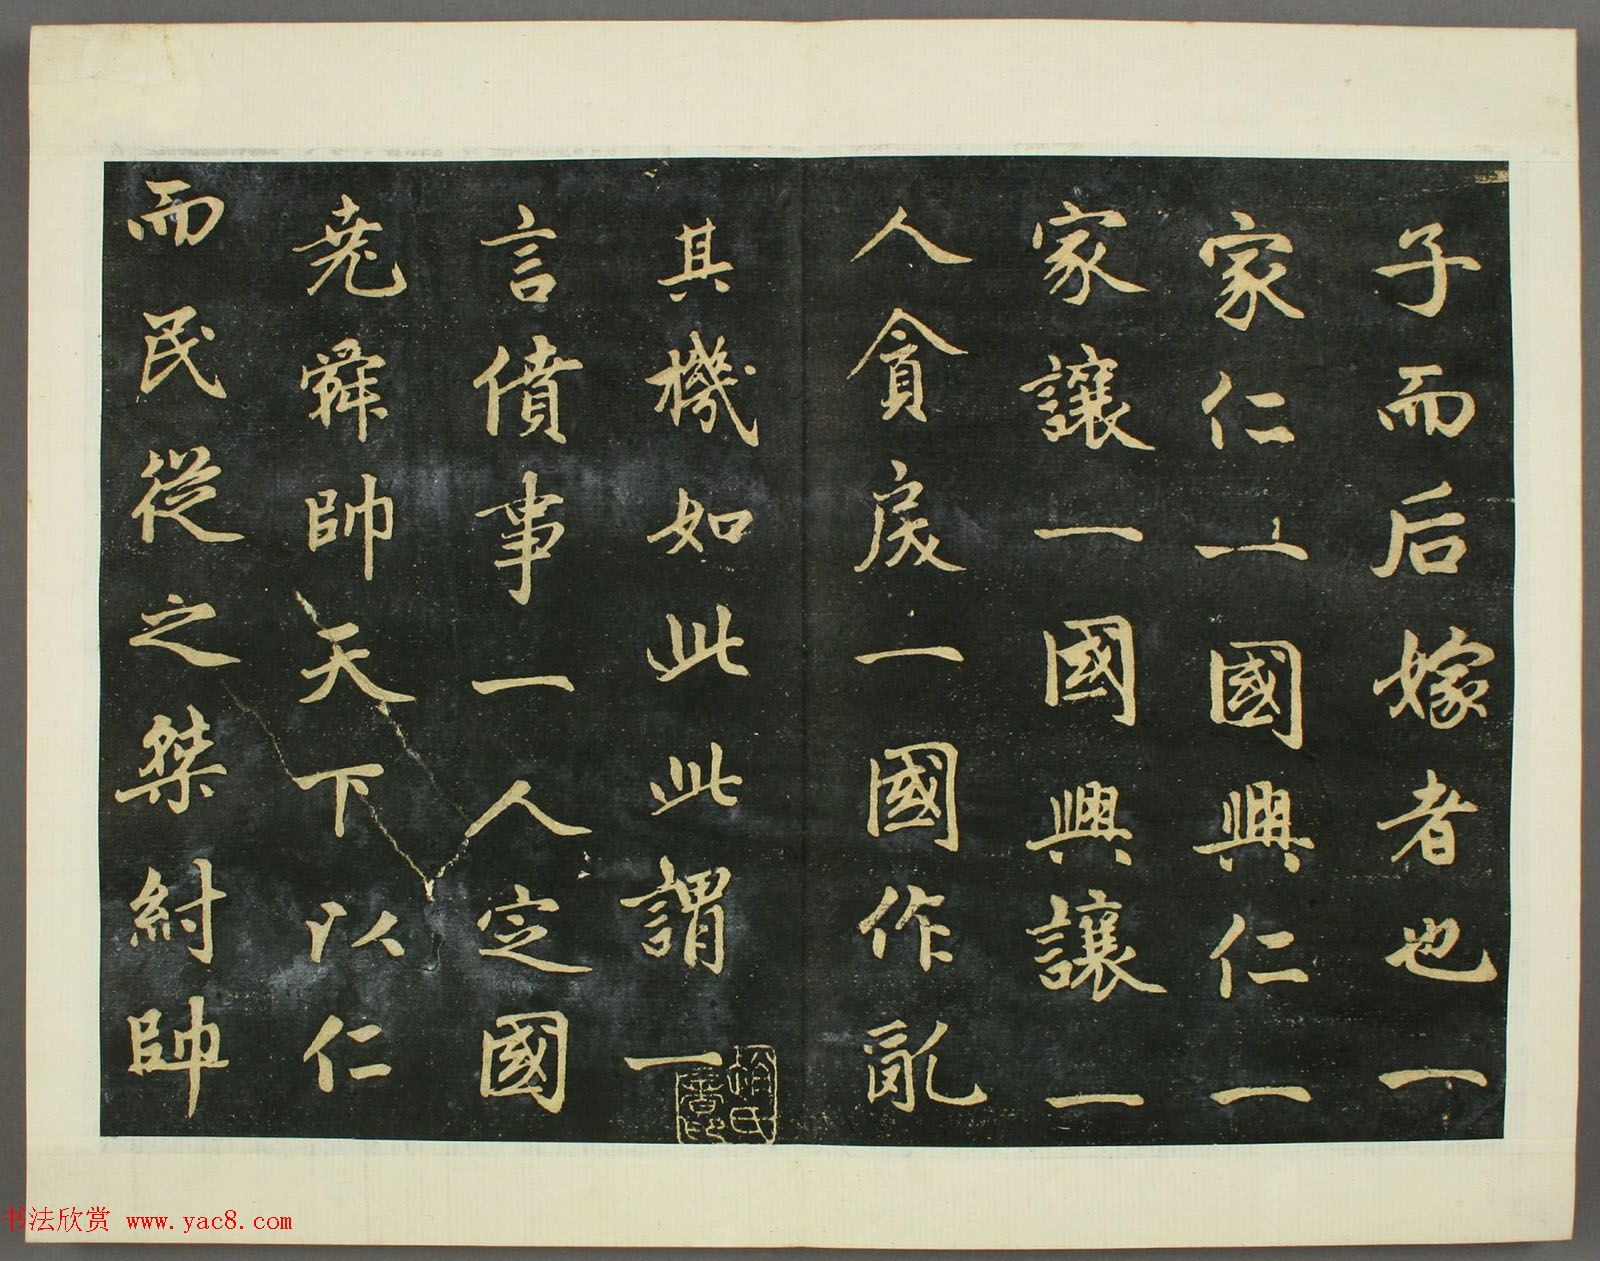 子而后嫁者也一
家仁一國興仁一
家讓一國興讓一
人貪戾一國作亂
其機如此此謂一
言僨事一人定國
堯舜帥天下以仁
而民從之桀紂帥
书法欣赏 www.yac8.com